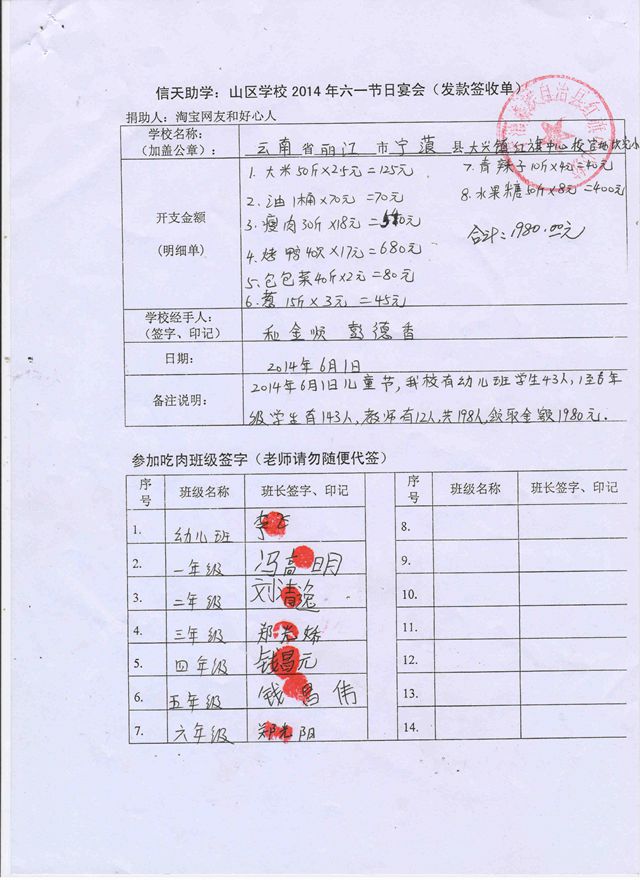 信天助学：山区学校 2014 年六一节日宴会（发款签收单）
捐助人：淘宝网友和好心人
学校名称：
（加盖公章）：
云南省丽江市宁蒗县大兴镇红旗中心校
开支金额
(明细单)
1. 大米50斤×2.5元=125元
2. 油1桶×70元=70元
3. 瘦肉30斤×18元=540元
4. 烤鸭40只×17元=680元
5. 包包菜40斤×2元=80元
6. 葱 15斤×3元=45元
7. 青辣子10斤×4元=40元
8. 水果糖50斤×8元=400元
合计：1980.00元
学校经手人：
（签字、印记）
和金顺 彭德香
日期：
2014年6月1日
备注说明：
2014年6月1日儿童节，我校有幼儿班学生43人，1至6年
级学生有143人，教师有12人，共198人，领取金额1980元.
参加吃肉班级签字（老师请勿随便代签）
序号 班级名称 班长签字、印记 序号 班级名称 班长签字、印记
1. 幼儿班 李 8.
2. 一年级 冯高明 9.
3. 二年级 刘清逸 10.
4. 三年级 郑 11.
5. 四年级 钱昌元 12.
6. 五年级 钱昌伟 13.
7. 六年级 郑光阳 14.